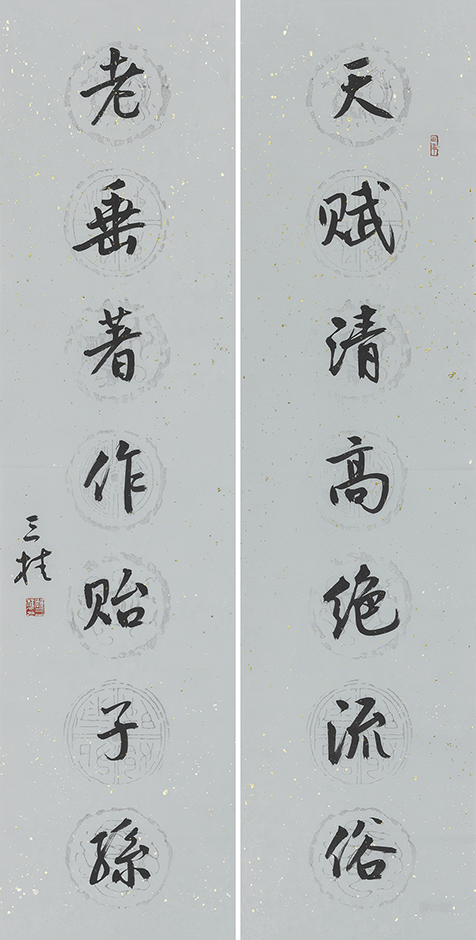 天赋清高绝流俗
老垂著作贻子孫
三桂